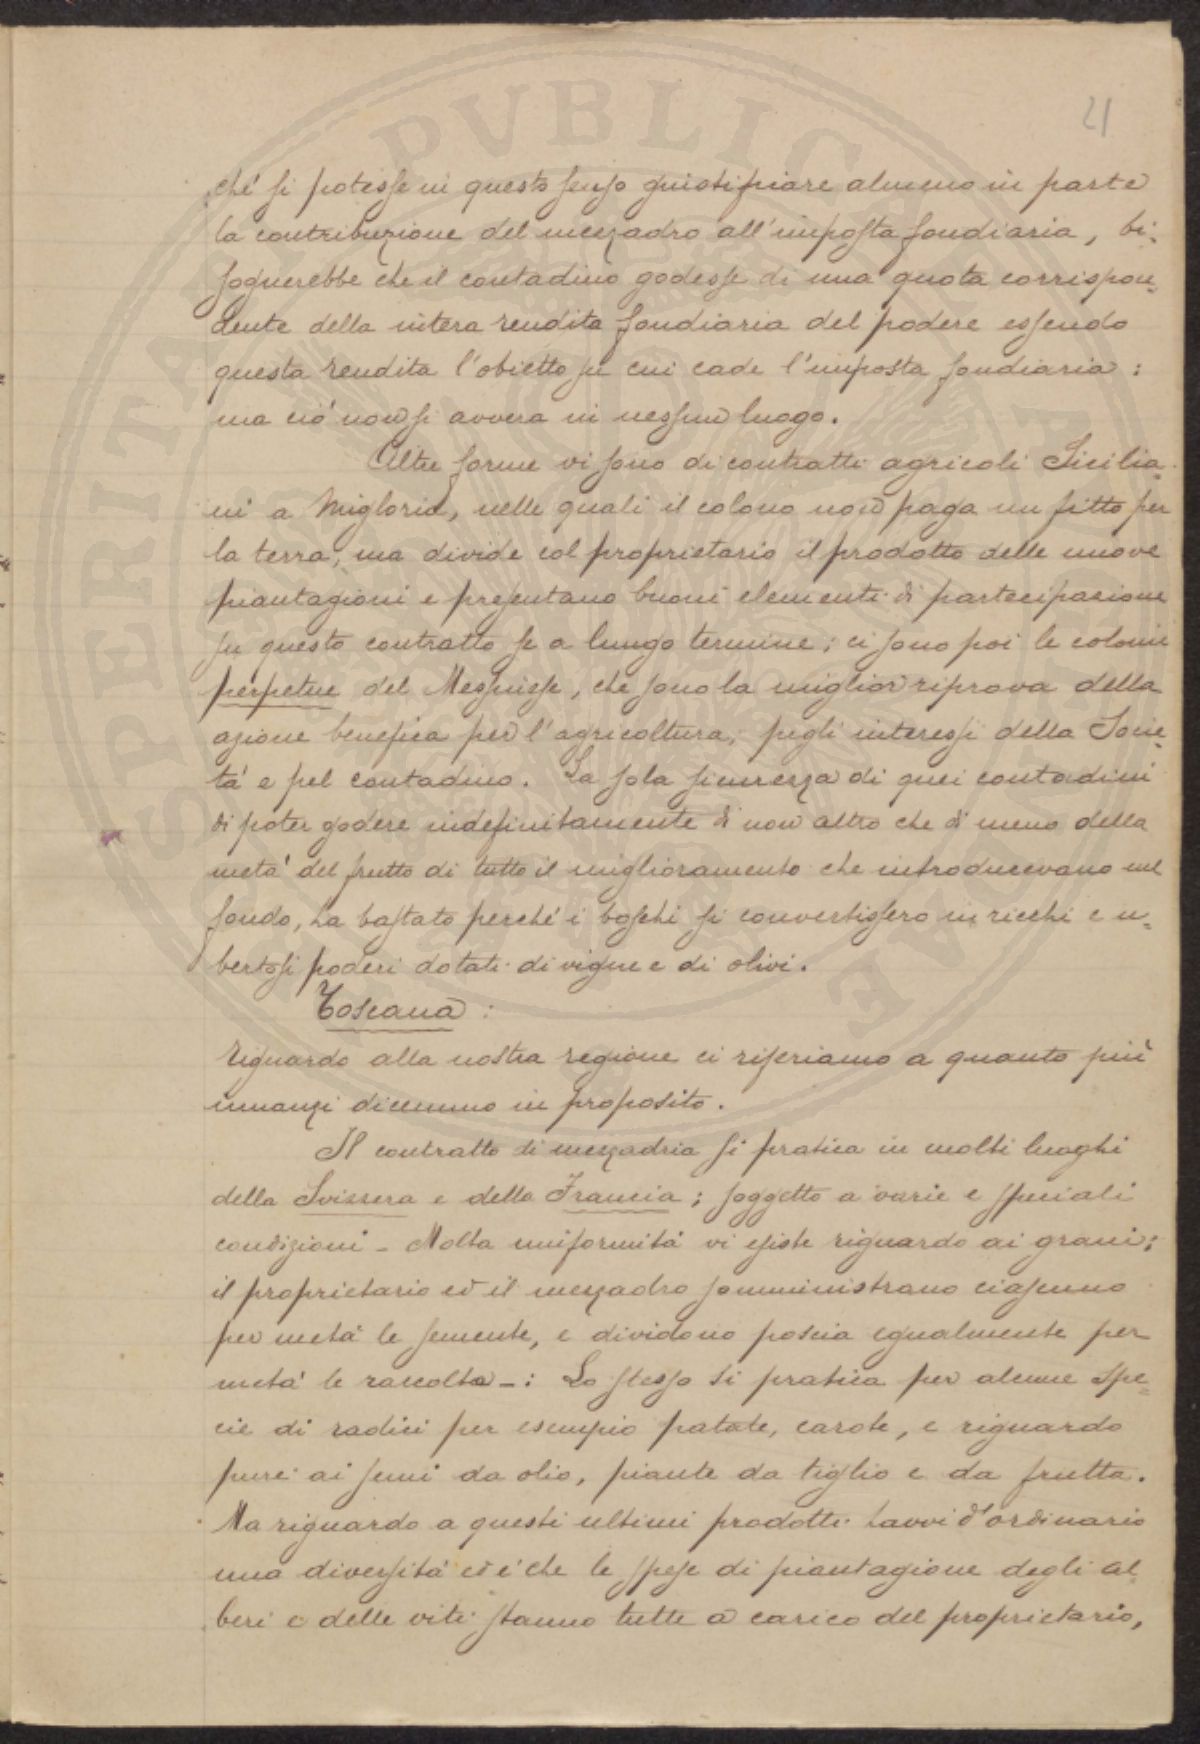 21
ché si potesse in questo senso giustificare almeno in parte
la contribuzione del mezzadro all'imposta fondiaria, bi-
sognerebbe che il contadino godesse di una quota corrispon-
dente della intera rendita fondiaria del podere essendo
questa rendita l'obietto su cui cade l'imposta fondiaria:
ma ciò non si avvera in nessun luogo.
Altre forme vi sono di contratti agricoli Sicilia-
ni a Miglioria, nelle quali il colono non paga un fitto per
la terra, ma divide col proprietario il prodotto delle nuove
piantagioni e presentano buoni elementi di partecipazione
su questo contratto se a lungo termine; ci sono poi le colonie
perpetue del Messinese, che sono la miglior riprova della
azione benefica per l'agricoltura, pegli interessi della Socie-
tá e pel contadino. La sola sicurezza di quei contadini
di poter godere indefinitamente di non altro che di meno della
metá del frutto di tutto il miglioramento che introducevano nel
fondo, ha bastato perché i boschi si convertissero in ricchi e u-
bertosi poderi dotati di vigne e di olivi.
Toscana:
Riguardo alla nostra regione ci riferiamo a quanto più
innanzi dicemmo in proposito.
Il contratto di mezzadria si pratica in molti luoghi
della Svizzera e della Francia; soggetto a varie e speciali
condizioni - Molta uniformitá vi esiste riguardo ai grani;
il proprietario ed il mezzadro somministrano ciascuno
per metá le semente, e dividono poscia egualmente per
metá le raccolta -: Lo stesso si pratica per alcune spe-
cie di radici per esempio patate, carote, e riguardo
pure ai semi da olio, piante da tiglio e da frutta.
Ma riguardo a questi ultimi prodotti havvi d'ordinario
una diversitá ed é che le spese di piantagione degli al-
beri e delle viti stanno tutte a carico del proprietario,
PVBLICAE
SPERITATI